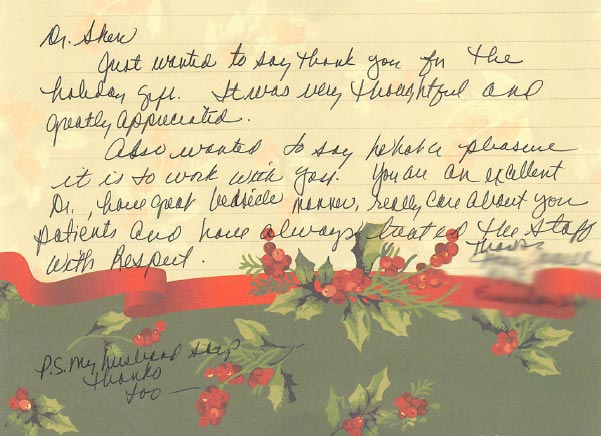 Dr. Shen
Just wanted to say thank you for the
holiday gift. It was very thoughtful and
greatly appreciated.
Also wanted to say what a pleasure
it is to work with you. You are an excellent
Dr., have great bedside manner, really care about you
patients and have always treated the staff
with Respect.
Thanks
P.S. My husband says
thanks
too —